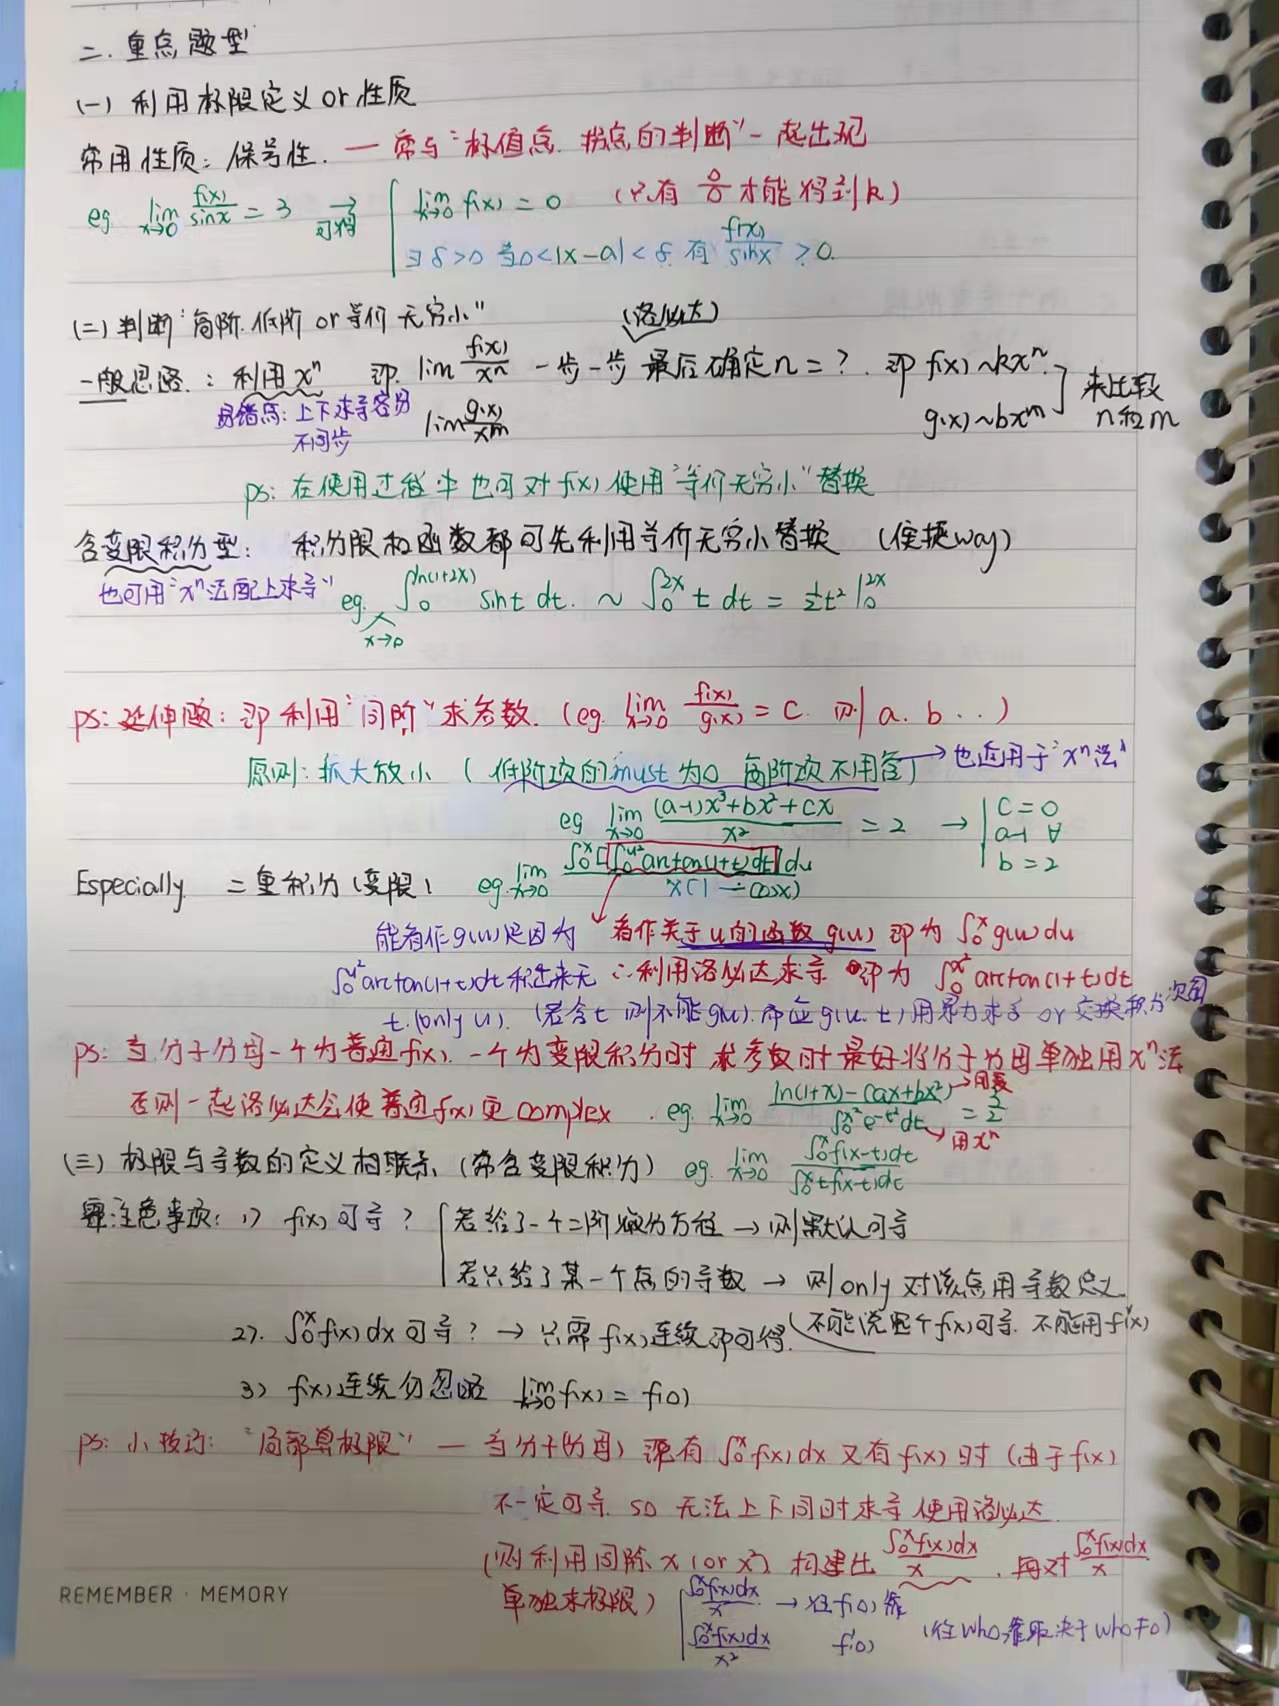 二. 重点题型
(一) 利用极限定义or性质
常用性质: 保号性. — 常与"极值点. 拐点的判断"一起出现
eg. lim x→0 f(x)/sinx = 3 →可得 { lim x→0 f(x) = 0 (只有 0/0 才能得到k)
∃δ>0 当0<|x-a|<δ. 有 f(x)/sinx > 0.
(二) 判断"高阶. 低阶 or 等价无穷小"
(洛必达)
一般思路: 利用x^n 即. lim f(x)/x^n 一步一步 最后确定n=? . 即 f(x)~kx^n. ] 来比较
易错点: 上下求导容易 lim g(x)/x^m g(x)~bx^m n和m
不同步
ps: 在使用过程中也可对f(x)使用"等价无穷小"替换
含变限积分型: 积分限和函数都可先利用等价无穷小替换 (便捷way)
也可用"x^n法配上求导" eg. ∫₀^{ln(1+2x)} sint dt. ~ ∫₀^{2x} t dt = ½t² |₀^{2x}
x→0
ps: 延伸题: 即利用"同阶"求参数. (eg. lim x→0 f(x)/g(x) = C. 则 a. b . . )
原则: 抓大放小 ( 低阶项的must为0 高阶项不用管) → 也适用于"x^n法"
eg lim x→0 ((a-1)x³+bx²+cx)/x² = 2 → | c=0
a-1 ∀
b=2
Especially 二重积分(变限) eg. lim x→0 ∫₀^x [∫₀^{u²} arctan(1+t)dt] du / x(1-cosx)
能看作g(u)是因为 看作关于u的函数g(u) 即为 ∫₀^x g(u)du
∫₀^{u²} arctan(1+t)dt积出来无 ∴利用洛必达求导 即为 ∫₀^{x²} arctan(1+t)dt
t.(only u). (若含t 则不能g(u). 而应g(u.t)用暴力求导 or 交换积分次序)
ps: 当分子分母一个为普通f(x). 一个为变限积分时 求参数时最好将分子分母单独用x^n法
否则一起洛必达会使普通f(x)更complex . eg. lim x→0 (ln(1+x)-(ax+bx²))/∫₀^{x²} e^{-t²}dt = →用泰 →用x^n
(三) 极限与导数的定义相联系 (常含变限积分) eg. lim x→0 ∫₀^x f(x-t)dt / ∫₀^x tf(x-t)dt
需注意事项: 1) f(x)可导? { 若给了一个二阶微分方程 → 则默认可导
若只给了某一个点的导数 → 则only 对该点用导数定义
2). ∫₀^x f(x)dx可导? → 只需f(x)连续即可得. (不能说整个f(x)可导. 不能用f'(x)
3) f(x)连续勿忽略 lim x→0 f(x) = f(0)
ps: 小技巧: "局部算极限" — 当分子(分母) 既有∫₀^x f(x)dx 又有f(x)时 (由于f(x)
不一定可导. so 无法上下同时求导使用洛必达
(则利用同除x (or x²) 构建出 ∫₀^x f(x)dx/x . 再对 ∫₀^x f(x)dx/x
单独求极限) { ∫₀^x f(x)dx/x → 往f(0)靠
∫₀^x f(x)dx/x² f'(0) (往who靠取决于who≠0)
REMEMBER · MEMORY